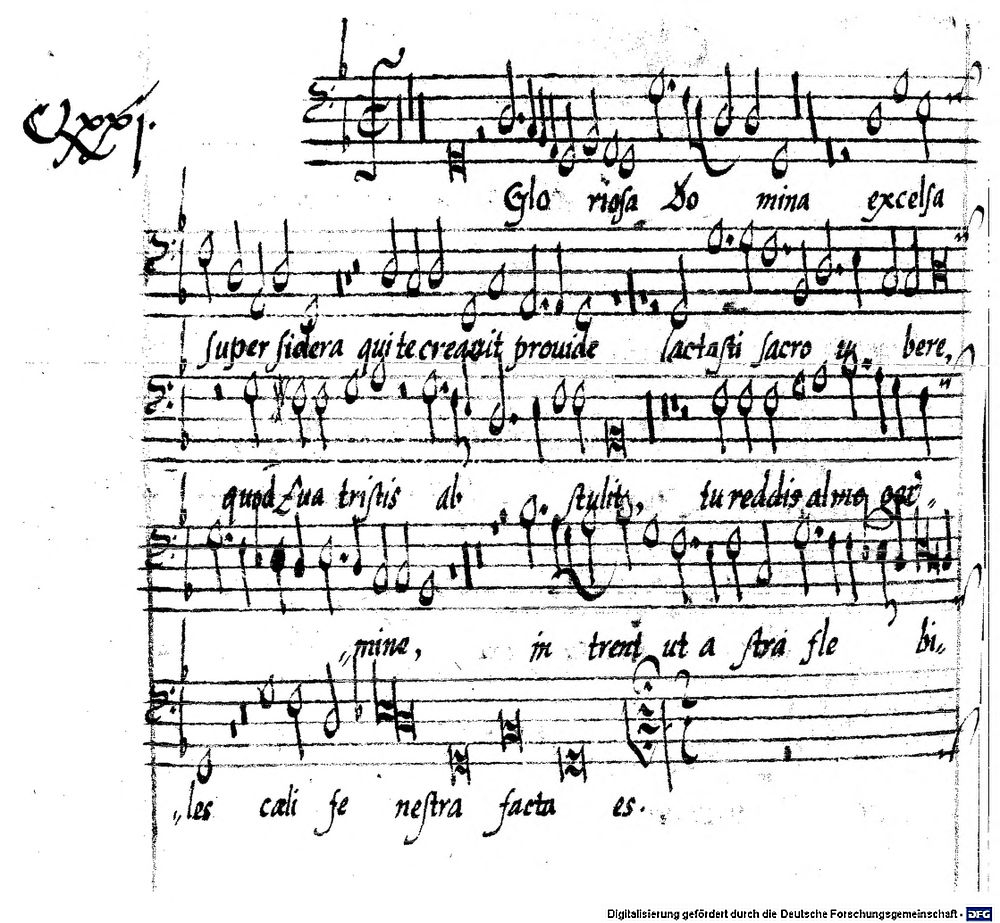 Cxxxj.
Glo riosa Do mina excelsa
super sidera qui te creauit prouide lactasti sacro u bere,
quod Eua tristis ab stulit, tu reddis almo ger„
„mine, in trent ut a stra fle bi„
„les cæli fe nestra facta es.
Digitalisierung gefördert durch die Deutsche Forschungsgemeinschaft - DFG